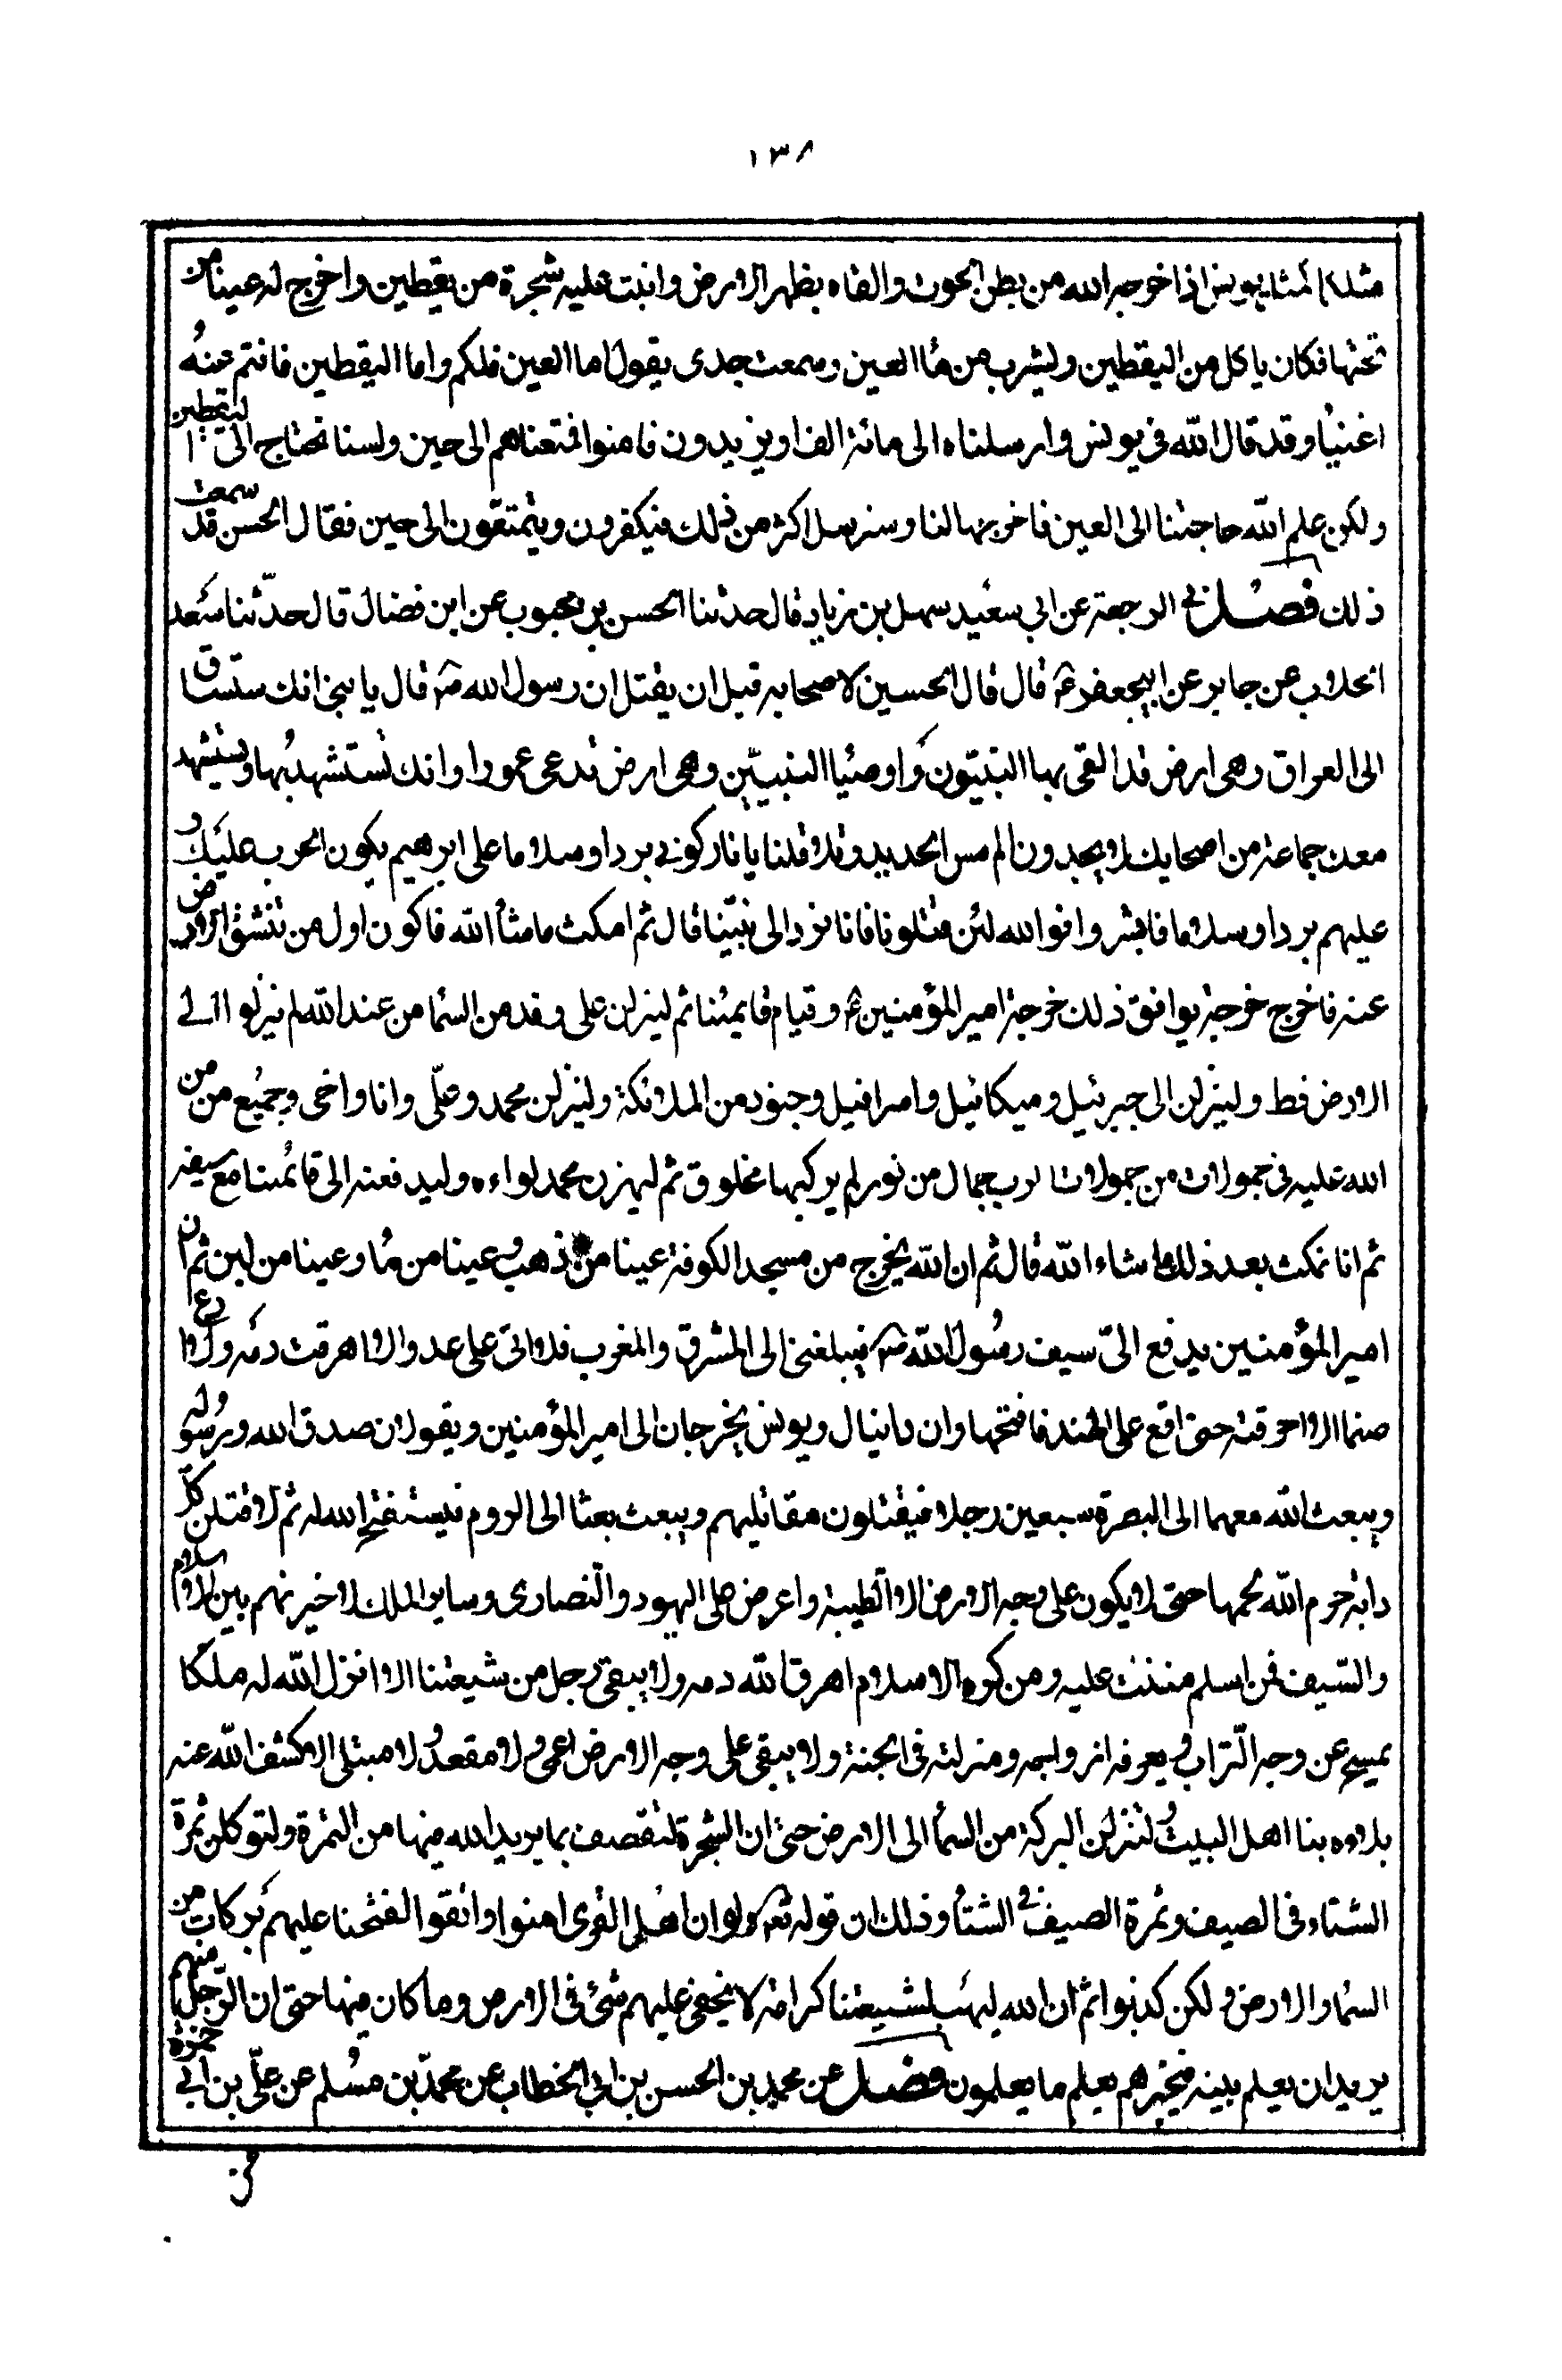 ١٣٨
مثلكم كمثل يونس اذا خرجه الله من بطن الحوت والقاه بظهر الارض وانبت عليه شجرة من يقطين واخرج له عينا من
تحتها فكان ياكل من اليقطين ويشرب من مآ العين وسمعت جدى يقول اما العين فلكم واما اليقطين فانتم عنه
اغنيآ وقد قال الله فى يونس وارسلناه الى مائة الف او يزيدون فامنوا فمتعناهم الى حين ولسنا نحتاج الى اليقطين
ولكن علم الله حاجتنا الى العين فاخرجها لنا وسنرسل اكثر من ذلك فيكفرون ويتمتعون الى حين فقال الحسن قد سمعت
ذلك فصل فى الرجعة عن ابي سعيد سهل بن زياد قال حدثنا الحسن بن محبوب عن ابن فضال قال حدّثنا سعد
الجلاب عن جابر عن ابيجعفر ع قال قال الحسين لاصحابه قبل ان يقتل ان رسول الله ص قال يا بنى انك ستساق
الى العراق وهى ارض قد التقى بها النبيّون واوصيآ النبيّين وهى ارض تدعى عمورا وانك تستشهد بها ويستشهد
معك جماعة من اصحابك لا يجدون الم مس الحديد وتلا قلنا يا نار كونى بردا وسلاما على ابرهيم يكون الحرب عليك و
عليهم بردا وسلاما فابشروا فوالله لئن قتلونا فانا نرد الى نبيّنا قال ثم امكث ما شآ الله فاكون اول من تنشق الارض
عنه فاخرج خرجة يوافق ذلك خرجة امير المؤمنين ع وقيام قايمنا ثم لينزلن على وفد من السمآ من عند الله لم ينزلوا الى
الارض قط ولينزلن الى جبرئيل وميكائيل واسرافيل وجنود من الملائكة ولينزلن محمد وعلّى وانا واخى وجميع من من
الله عليه فى حمولات من حمولات الرب جمال من نور لم يركبها مخلوق ثم ليهزن محمد لواءه وليدفعنه الى قائمنا مع سيفه
ثم انا نمكث بعد ذلك ما شاء الله قال ثم ان الله يخرج من مسجد الكوفة عينا من ذهب وعينا من مآ وعينا من لبن ثم ان
امير المؤمنين يدفع الىّ سيف رسول الله ص فيبلغنى الى المشرق والمغرب فلا اتى على عدو الا اهرقت دمه ولا ادع
صنما الا احرقته حتى اقع على الهند فافتحها وان دانيال ويونس يخرجان الى امير المؤمنين ويقولان صدق الله ورسوله
ويبعث الله معهما الى البصرة سبعين رجلا فيقتلون مقاتليهم ويبعث بعثا الى الروم فيستفتح الله له ثم لاقتلن كلّ
دابة حرم الله لحمها حتى لا يكون على وجه الارض الا الطيبة واعرض على اليهود والنصارى وساير الملل لاخيرنهم بين الاسلام
والسيف فمن اسلم مننت عليه ومن كره الاسلام اهرق الله دمه ولا يبقى رجل من شيعتنا الا انزل الله له ملكا
يمسح عن وجه التراب ويعرفه ازواجه ومنزلته فى الجنة ولا يبقى على وجه الارض اعمى ولا مقعد ولا مبتلى الا كشف الله عنه
بلاوه بنا اهل البيت ولتنزلن البركة من السمآ الى الارض حتى ان الشجرة لتقصف بما يريد الله فيها من الثمرة ولتوكلن ثمرة
الشتاء فى الصيف وثمرة الصيف فى الشتآ وذلك ان قوله تع ولو ان اهل القرى امنوا واتقوا لفتحنا عليهم بركات من
السمآ والارض ولكن كذبوا ثم ان الله ليهب لشيعتنا كرامة لا يخفى عليهم شئ فى الارض وما كان فيها حتى ان الرّجل منهم
يريد ان يعلم بيته فيخبرهم بعلم ما يعلمون فصل عن محمد بن الحسن بن ابى الخطاب عن محمّد بن مسلم عن علّى بن ابى حمزة